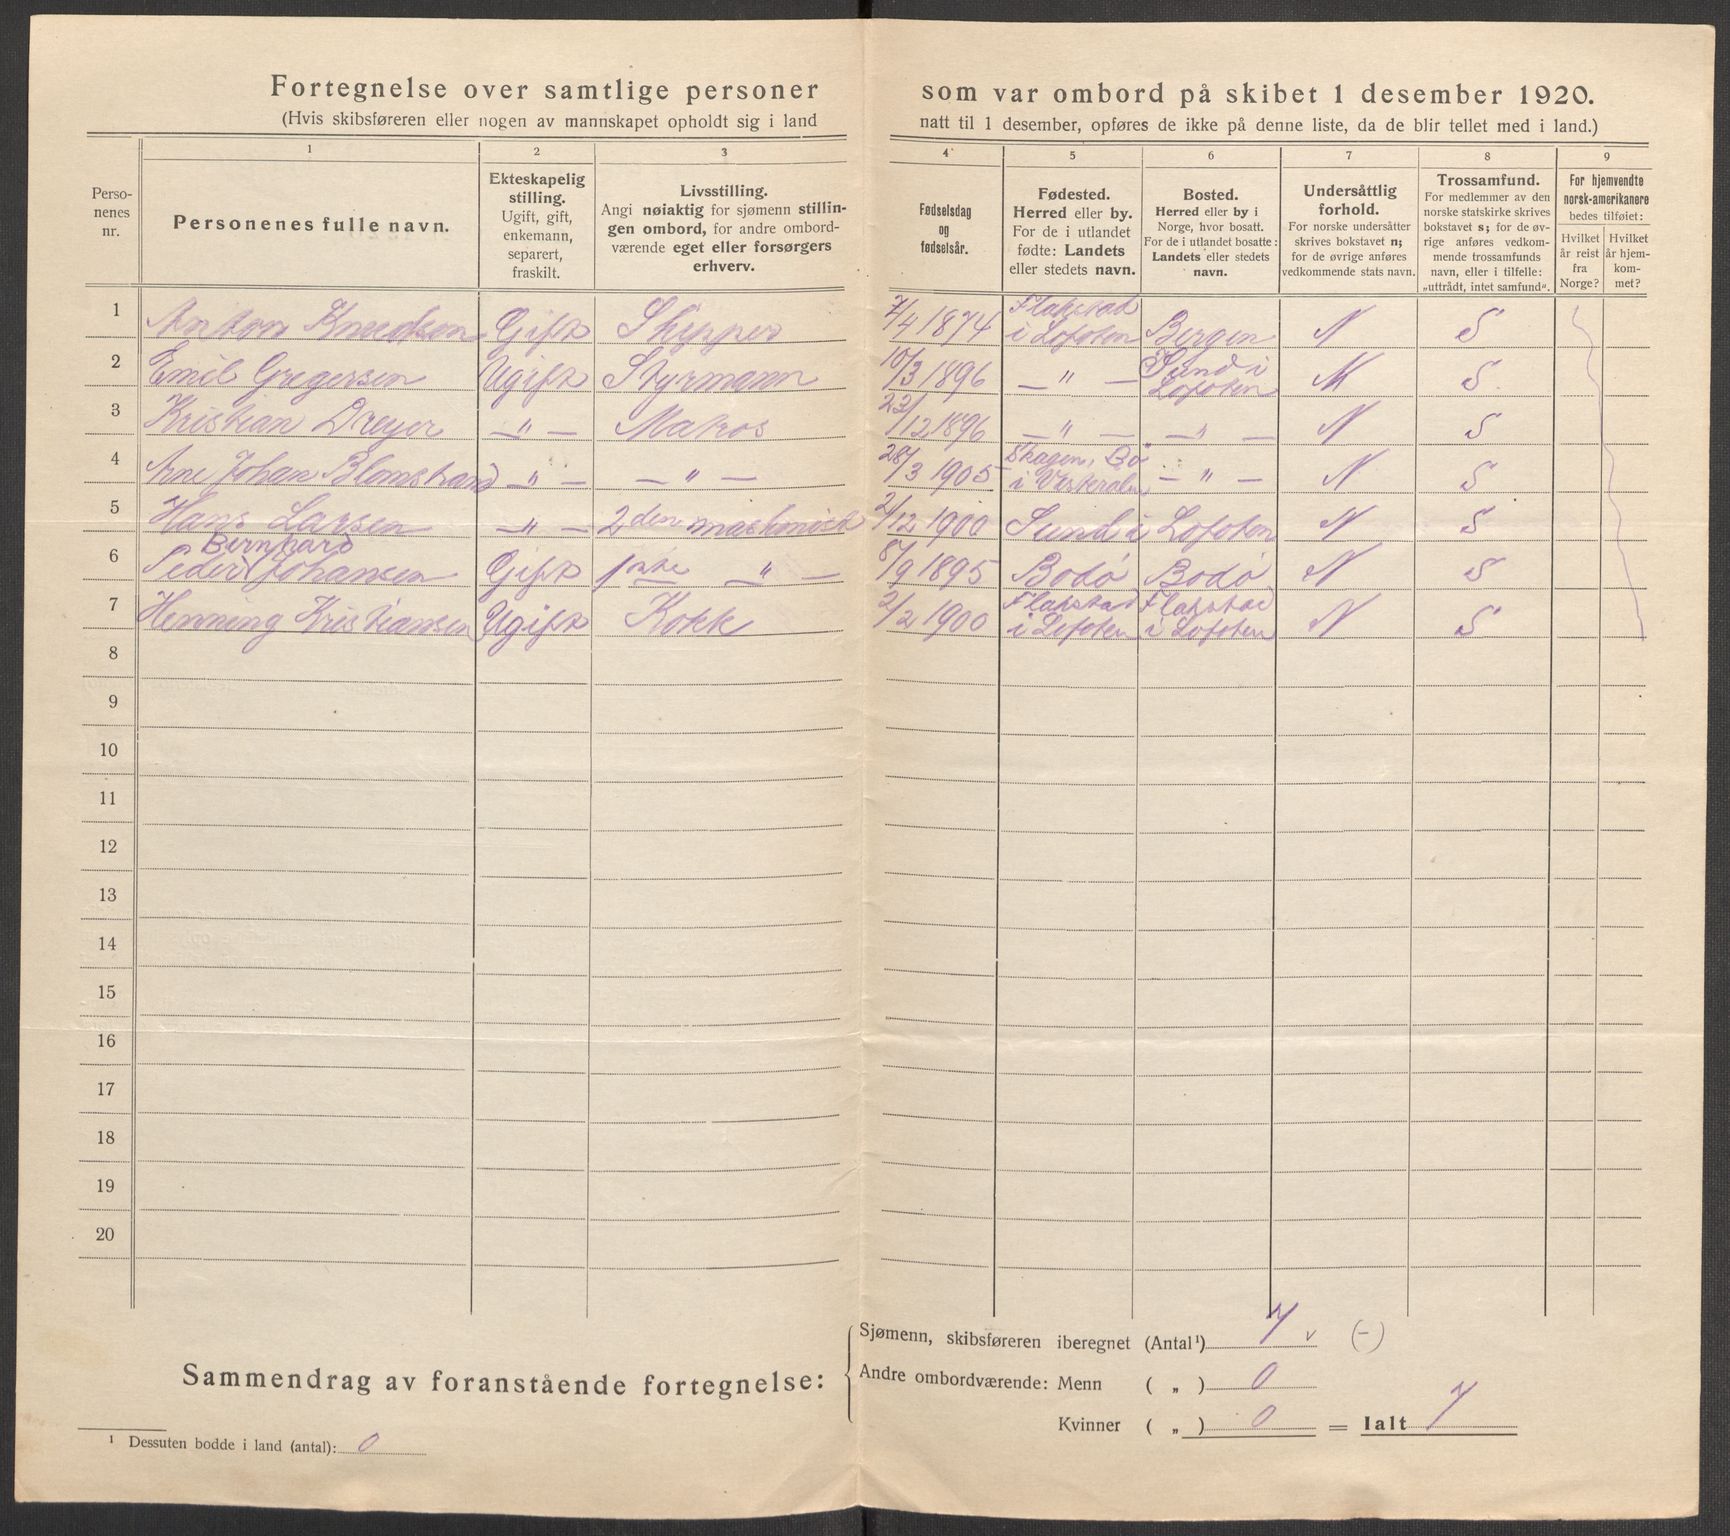 Fortegnelse over samtlige personer som var ombord på skibet 1 desember 1920.
(Hvis skibsføreren eller nogen av mannskapet opholdt sig i land natt til 1 desember, opføres de ikke på denne liste, da de blir tellet med i land.)
1 2 3 4 5 6 7 8 9
Perso-
nenes
nr.
Personenes fulle navn.
Ekteskapelig
stilling.
Ugift, gift,
enkemann,
separert,
fraskilt.
Livsstilling.
Angi nøiaktig for sjømenn stillin-
gen ombord, for andre ombord-
værende eget eller forsørgers
erhverv.
Fødselsdag
og
fødselsår.
Fødested.
Herred eller by.
For de i utlandet
fødte: Landets
eller stedets navn.
Bosted.
Herred eller by i
Norge, hvor bosatt.
For de i utlandet bosatte:
Landets eller stedets
navn.
Undersåttlig
forhold.
For norske undersåtter
skrives bokstavet n;
for de øvrige anføres
vedkommende stats navn.
Trossamfund.
For medlemmer av den
norske statskirke skrives
bokstavet s; for de øv-
rige anføres vedkom-
mende trossamfunds
navn, eller i tilfelle:
„uttrådt, intet samfund".
For hjemvendte
norsk-amerikanere
bedes tilføiet:
Hvilket
år reist
fra
Norge?
Hvilket
år hjem-
kom-
met?
1 Anton Knudsen Gift Skipper 7/4 1874 Flakstad i Lofoten Bergen N S
2 Emil Gregersen Ugift Styrmann 10/3 1896 — " — Sund i Lofoten N S
3 Kristian Dreyer — " — Matros 22/12 1896 — " — — " — N S
4 Arne Johan Blomstrand — " — — " — 28/3 1905 Skagen, Bø i Vesteralen — " — N S
5 Hans Larsen — " — 2den maskinist 2/12 1900 Sund i Lofoten N S
6 Peder Bernhard Johansen Gift 1ste " — 8/9 1895 Bodø Bodø N S
7 Henning Kristiansen Ugift Kokk 2/2 1900 Flakstad i Lofoten Flakstad i Lofoten N S
8
9
10
11
12
13
14
15
16
17
18
19
20
Sammendrag av foranstående fortegnelse:
Sjømenn, skibsføreren iberegnet (Antal¹) 7 v (-)
Andre ombordværende: Menn ( „ ) 0
Kvinner ( „ ) 0 = Ialt 7
¹ Dessuten bodde i land (antal): 0